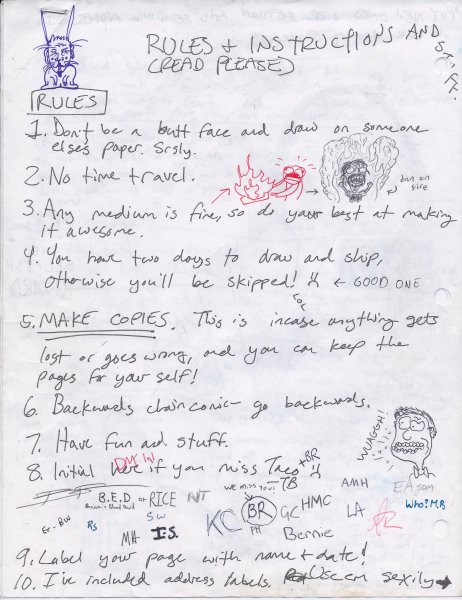 RULES + INSTRUCTIONS AND
(READ PLEASE)
RULES
1. Don't be a butt face and draw on someone
else's paper. Srsly.
2. No time travel.
dan on
fire
3. Any medium is fine, so do your best at making
it awesome.
4. You have two days to draw and ship,
otherwise you'll be skipped! ← GOOD ONE
LOL
5. MAKE COPIES. This is incase anything gets
lost or goes wrong, and you can keep the
pages for your self!
6. Backwards chain comic - go backwards.
7. Have fun and stuff.
8. Initial here if you miss Taco +BR
B.E.D. or RICE NT we miss you! -TB AMH E/A SAM
Er-BW RS SW KC BR GC HMC LA Who? MB
MH I.S. PH Bernie
9. Label your page with name + date!
10. I've included address labels. Use em sexily